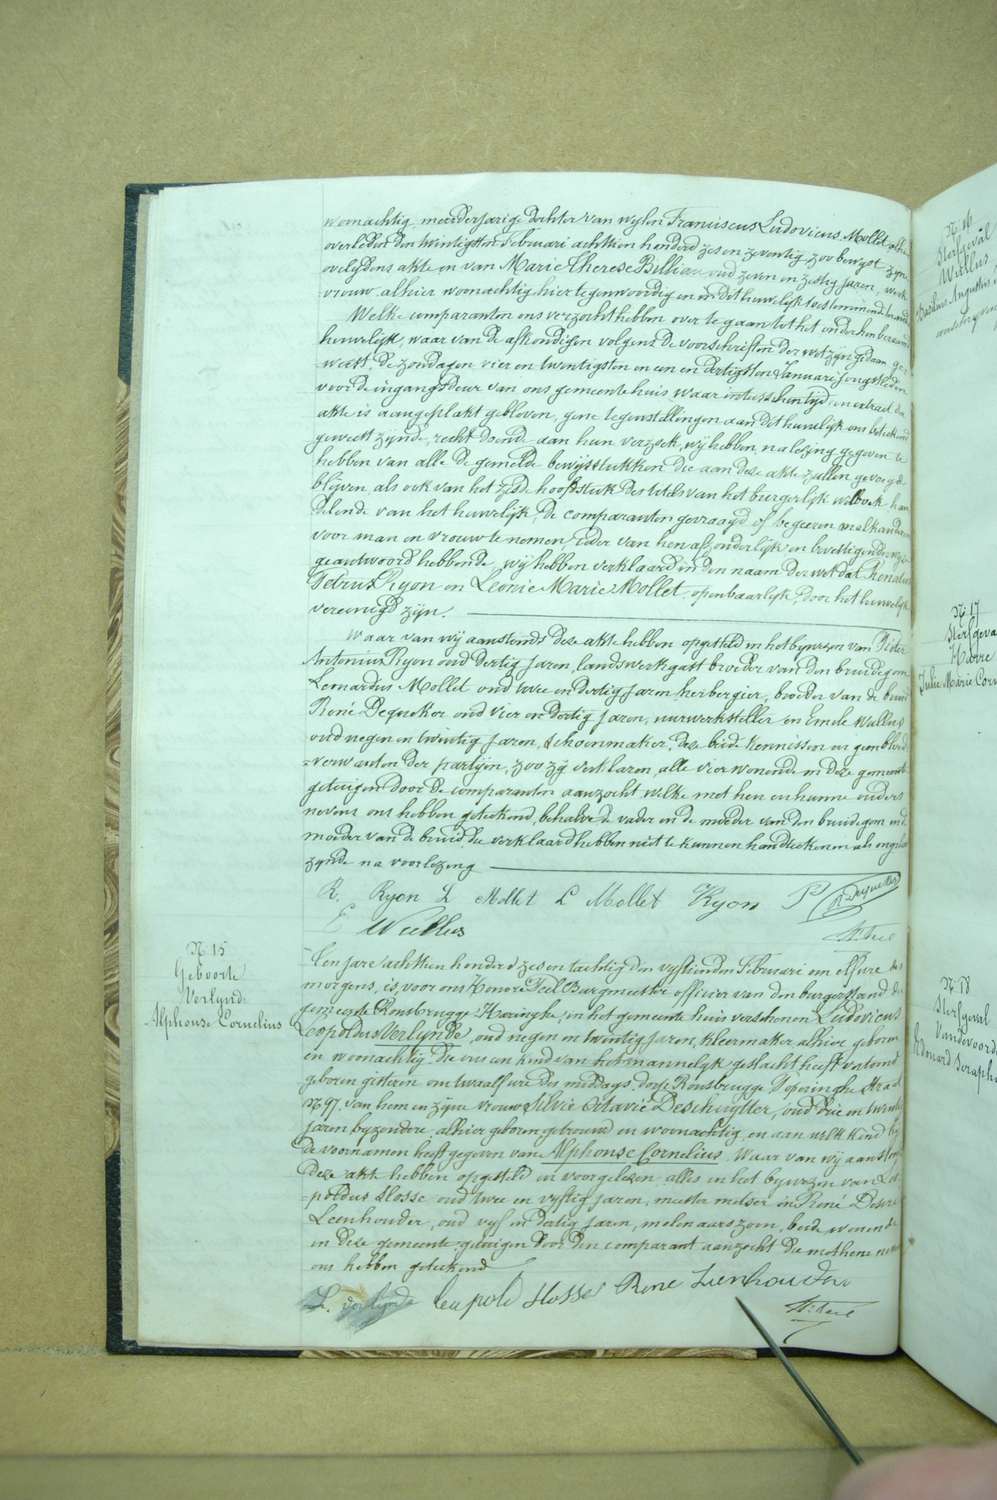 woonachtig, meerderjarige dochter van wylen Franciscus Ludovicus Mollet alhier
overleden den twintigsten Februari achttien honderd zes en zeventig, zoo bewyst zyne
overlydens akte en van Marie Therese Billiau oud zeven en zestig jaren, werk
vrouw, alhier woonachtig hier tegenwoordig en in dit huwelijk toestemmende
Welke comparanten ons verzocht hebben over te gaan tot het onder hen beraamde
huwelijk, waar van de afkondigen volgens de voorschriften der wet zyn gedaan ge-
weest de zondagen vier en twintigsten en een en dertigsten Januari jongstleden
voor de ingangsdeur van ons gemeentehuis waar intusschen tijd een extract der
akte is aangeplakt gebleven, gene tegenstellingen aan dit huwelijk ons beteekend
geweest zijnde, recht doende aan hun verzoek, wij hebben, na lezing gegeven te
hebben van alle de gemelde bewijsstukken die aan deze akte zullen gevoegd
blijven als ook van het zesde hoofdstuk des titels van het burgerlijk wetboek han
delende van het huwelijk, de comparanten gevraagd of begeeren malkanderen
voor man en vrouw te nemen, ieder van hen afzonderlijk en bevestigender wijze
geantwoord hebbende, wij hebben verklaard in den naam der wet dat Renatus
Petrus Ryon en Leonie Marie Mollet, openbaarlijk door het huwelijk
vereenigd zijn.
Waar van wij aanstonds deze akte hebben opgesteld in het bywezen van Pieter
Antonius Ryon oud dertig jaren, landswerkgast broeder van den bruidegom
Leonardus Mollet oud twee en dertig jaren herbergier, broeder van de bruid
René Dequeker oud vier en dertig jaren, uurwerksteller en Emile Wullus
oud negen en twintig jaren, schoenmaker, deze beide kennissen en geen bloed
verwanten der partijen, zoo zij verklaren, alle vier wonende in deze gemeente
getuigen door de comparanten aanzocht, welke met hen en hunne ouders
nevens ons hebben geteekend, behalve de vader en de moeder van den bruidegom en de
moeder van de bruid die verklaard hebben niet te kunnen handteekenen als ongeleerd
zijnde na voorlezing
R. Ryon L Mollet L Mollet Ryon P R Dequeker
E Wullus
N. 15
Geboorte
Verlynde
Alphonse Cornelius
Ten jare achttien honderd zes en tachtig den vyftienden Februari om elf ure des
morgens, is, voor ons Honoré Teel Burgmeester officier van den burgerstand der
gemeente Rousbrugge Haringhe, in het gemeente huis verschenen Ludovicus
Leopoldus Verlynde, oud negen en twintig jaren, kleermaker, alhier geboren
en woonachtig die ons een kind van het mannelijk geslacht heeft vertoond
geboren gisteren om twaalf ure des middags, dorp Rousbrugge Poperinghe straat
N 97. van hem en zijne vrouw Silvie Octavie Deschuytter, oud drie en twintig
jaren byzondere, alhier geboren getrouwd en woonachtig, en aan welk kind hij
de voornamen heeft gegeven van Alphonse Cornelius. Waar van wij aanstonds
deze akte hebben opgesteld en voorgelezen alles in het bywezen van Leo
poldus Hosse oud twee en vyftig jaren, meester metser en René Desiré
Leenhouder, oud vijf en dertig jaren, molenaars zoon, beide wonende
in deze gemeente getuigen door den comparant aanzocht die met hem nevens
ons hebben geteekend
L. Verlynde Leopold Hosse René Lienhouder
N. 16
Sterfgeval
Wullus
Basilius Augustus
N. 17
Sterfgeval
Julie Marie Corn
N. 18
Sterfgeval
Vandevoorde
Edouard Seraph